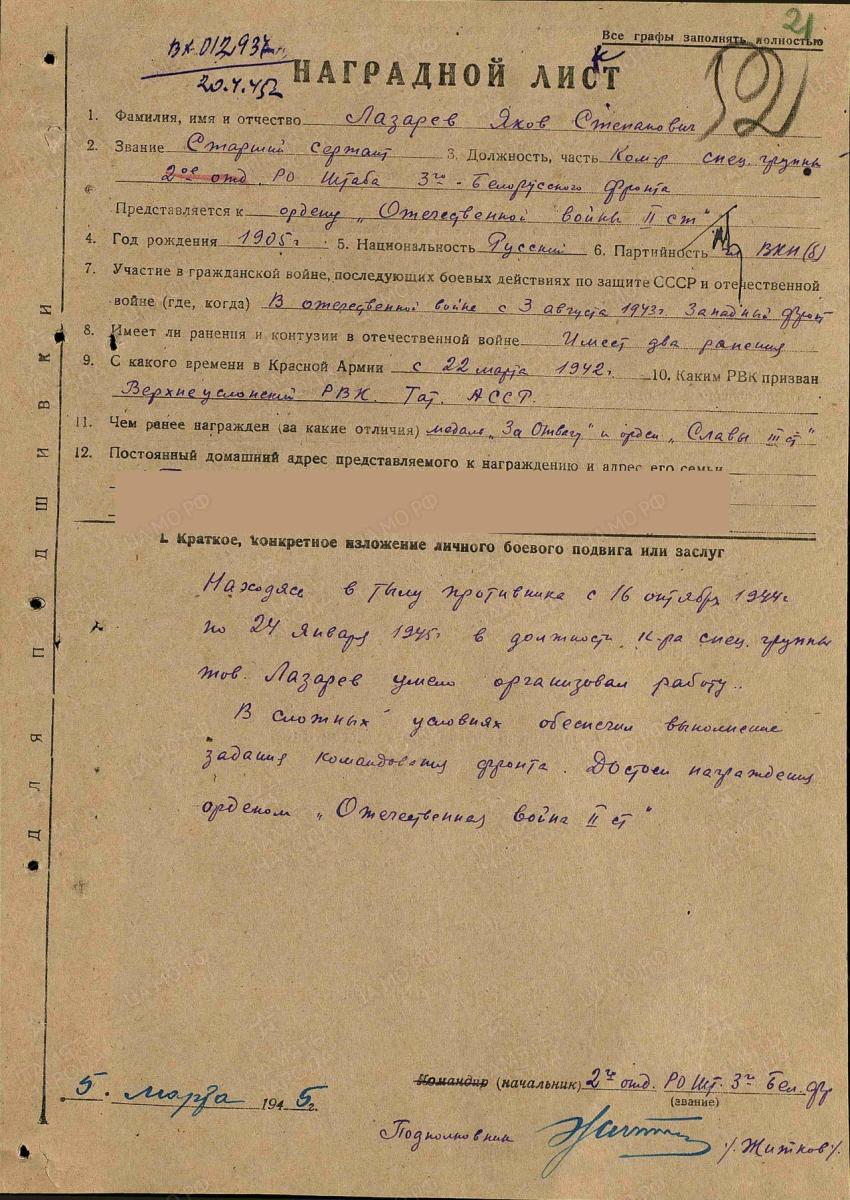 21
Все графы заполнять полностью
20.4.45
НАГРАДНОЙ ЛИСТ
1. Фамилия, имя и отчество Лазарев Яков Степанович
2. Звание Старший сержант 3. Должность, часть Ком-р спец. группы
2ое отд. РО Штаба 3го-Белорусского фронта
Представляется к ордену „Отечественной войны II ст"
4. Год рождения 1905г 5. Национальность Русский 6. Партийность ВКП(б)
7. Участие в гражданской войне, последующих боевых действиях по защите СССР и отечественной
войне (где, когда) В отечественной войне с 3 августа 1943г. Западный фронт
8. Имеет ли ранения и контузии в отечественной войне Имеет два ранения
9. С какого времени в Красной Армии с 22 марта 1942г. 10. Каким РВК призван
Верхнеуслонский РВК. Тат. АССР.
11. Чем ранее награжден (за какие отличия) медаль „За Отвагу" и орден „Славы III ст"
12. Постоянный домашний адрес представляемого к награждению и адрес его семьи
I. Краткое, конкретное изложение личного боевого подвига или заслуг
Находясь в тылу противника с 16 октября 1944г
по 24 января 1945г в должности к-ра спец. группы
тов. Лазарев умело организовал работу..
В сложных условиях обеспечил выполнение
задания командования фронта. Достоен награждения
орденом „Отечественная война II ст"
5. марта 1945г.
Командир (начальник) 2го отд. РО Шт. 3го Бел. фр
(звание)
Подполковник /Житков/.
ДЛЯ ПОДШИВКИ
ЦАМО РФ